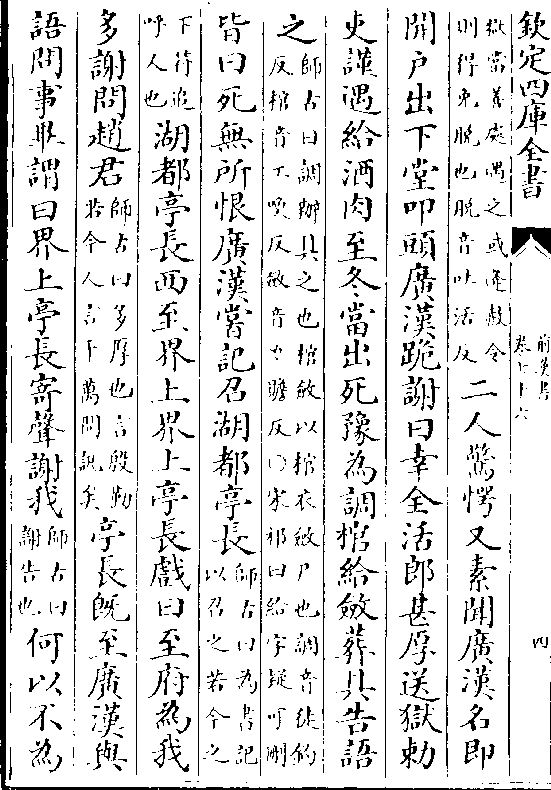 欽定四庫全書
前漢書
卷七十六
四
獄當善處遇之或逢赦令
則得免脫也脫音吐活反
二人驚愕又素聞廣漢名即
開戶出下堂叩頭廣漢跪謝曰幸全活郎甚厚送獄勑
吏謹遇給酒肉至冬當出死豫為調棺給斂葬具告語
之
師古曰調辦具之也棺斂以棺衣斂尸也調音徒釣
反棺音工喚反斂音力贍反〇宋祁曰給字疑可刪
皆曰死無所恨廣漢嘗記召湖都亭長
師古曰為書記
以召之若今之
下符追
呼人也
湖都亭長西至界上界上亭長戲曰至府為我
多謝問趙君
師古曰多厚也言殷勤
若今人言千萬問訊矣
亭長既至廣漢與
語問事畢謂曰界上亭長寄聲謝我
師古曰
謝告也
何以不為